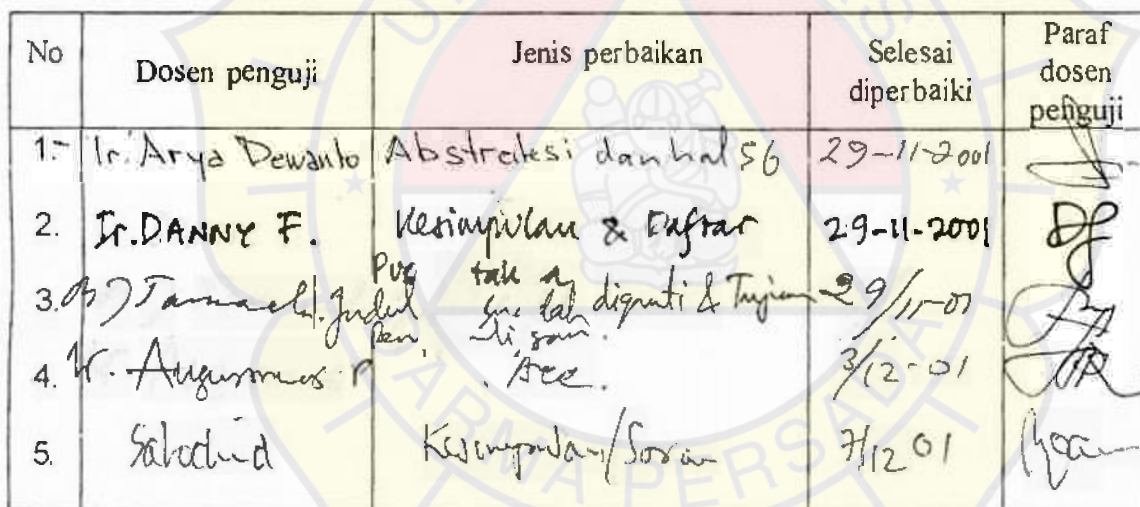 No Dosen penguji Jenis perbaikan Selesai diperbaiki Paraf dosen penguji
1.- Ir. Arya Dewanto Abstraksi dan hal 56 29-11-2001
2. Ir. DANNY F. Kesimpulan & Daftar 29-11-2001
3. Judul diganti & Tujuan 29/11-01
4. Ir. Augustinus P Acc. 3/12-01
5. Kesimpulan/Saran 7/12 01
DARMA PERSADA